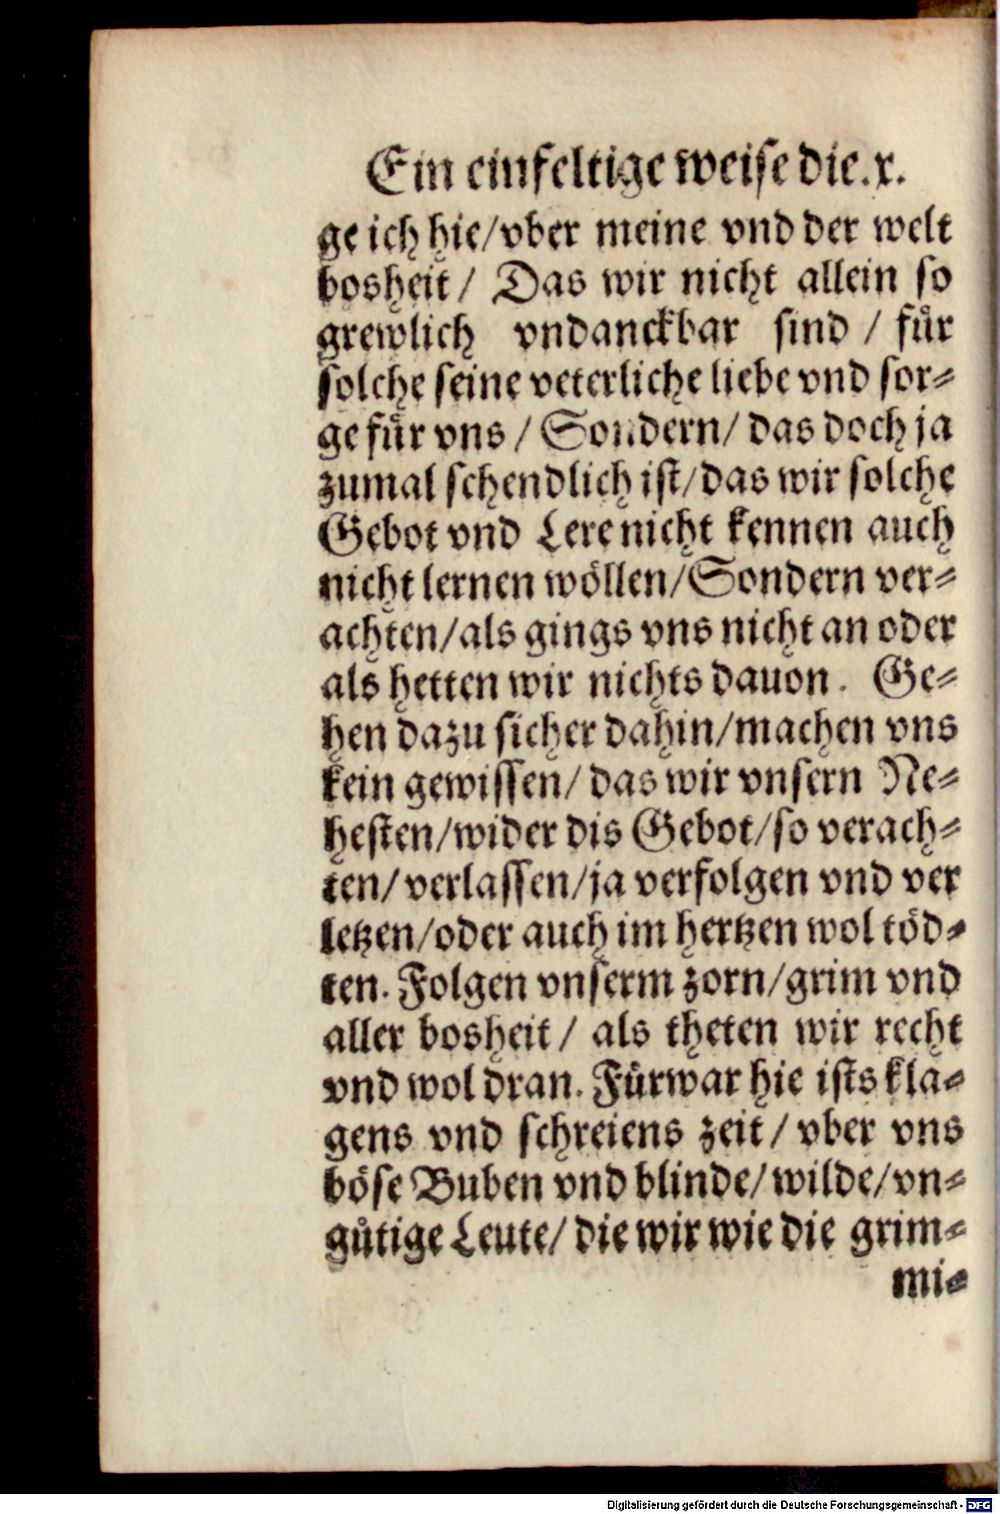 Ein einfeltige weise die.x.
ge ich hie/vber meine vnd der welt
bosheit/ Das wir nicht allein so
grewlich vndanckbar sind / fuͤr
solche seine veterliche liebe vnd sor⸗
ge fuͤr vns / Sondern/ das doch ja
zumal schendlich ist/das wir solche
Gebot vnd Lere nicht kennen auch
nicht lernen woͤllen/Sondern ver⸗
achten/als gings vns nicht an oder
als hetten wir nichts dauon. Ge⸗
hen dazu sicher dahin/machen vns
kein gewissen/ das wir vnsern Ne⸗
hesten/wider dis Gebot/so verach⸗
ten/ verlassen/ja verfolgen vnd ver
letzen/oder auch im hertzen wol toͤd⸗
ten. Folgen vnserm zorn/grim vnd
aller bosheit/ als theten wir recht
vnd wol dran. Fuͤrwar hie ists kla⸗
gens vnd schreiens zeit/ vber vns
boͤse Buben vnd blinde/ wilde/ vn⸗
guͤtige Leute/ die wir wie die grim⸗
mi⸗
Digitalisierung gefördert durch die Deutsche Forschungsgemeinschaft - DFG